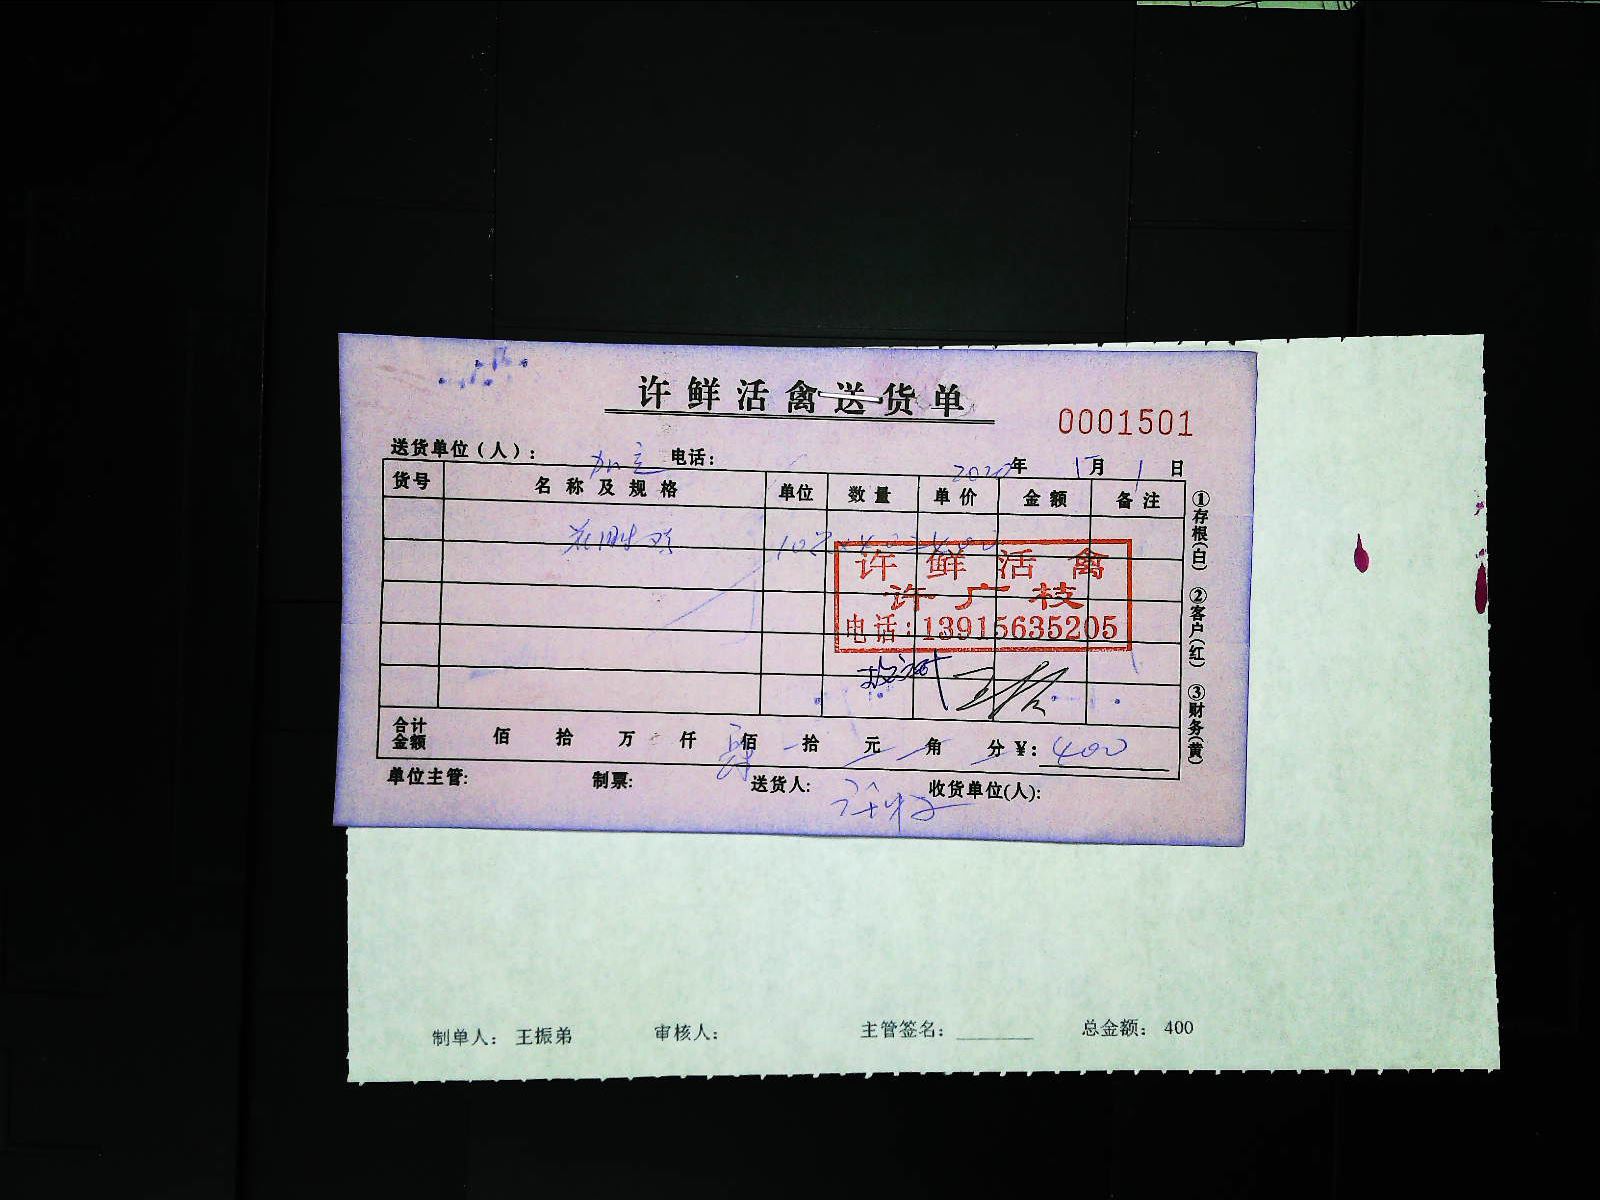 许鲜活禽送货单
0001501
送货单位（人）： 电话： 2020年 1月 1日
货号 名称及规格 单位 数量 单价 金额 备注
许鲜活禽
许广枝
电话：13915635205
合计金额 佰 拾 万 仟 肆佰 拾 元 角 分 ¥: 400
单位主管: 制票: 送货人: 收货单位(人):
①存根(白) ②客户(红) ③财务(黄)
制单人： 王振弟 审核人： 主管签名：______ 总金额： 400